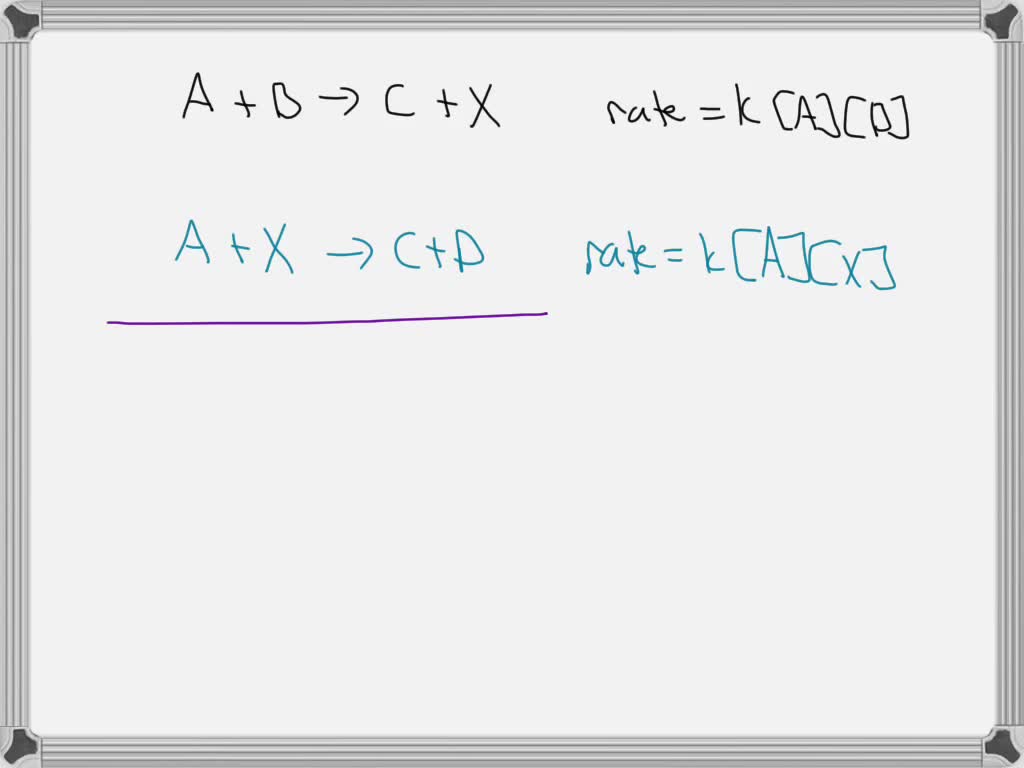 A + B → C + X rate = k[A][B]
A + X → C + D rate = k[A][X]